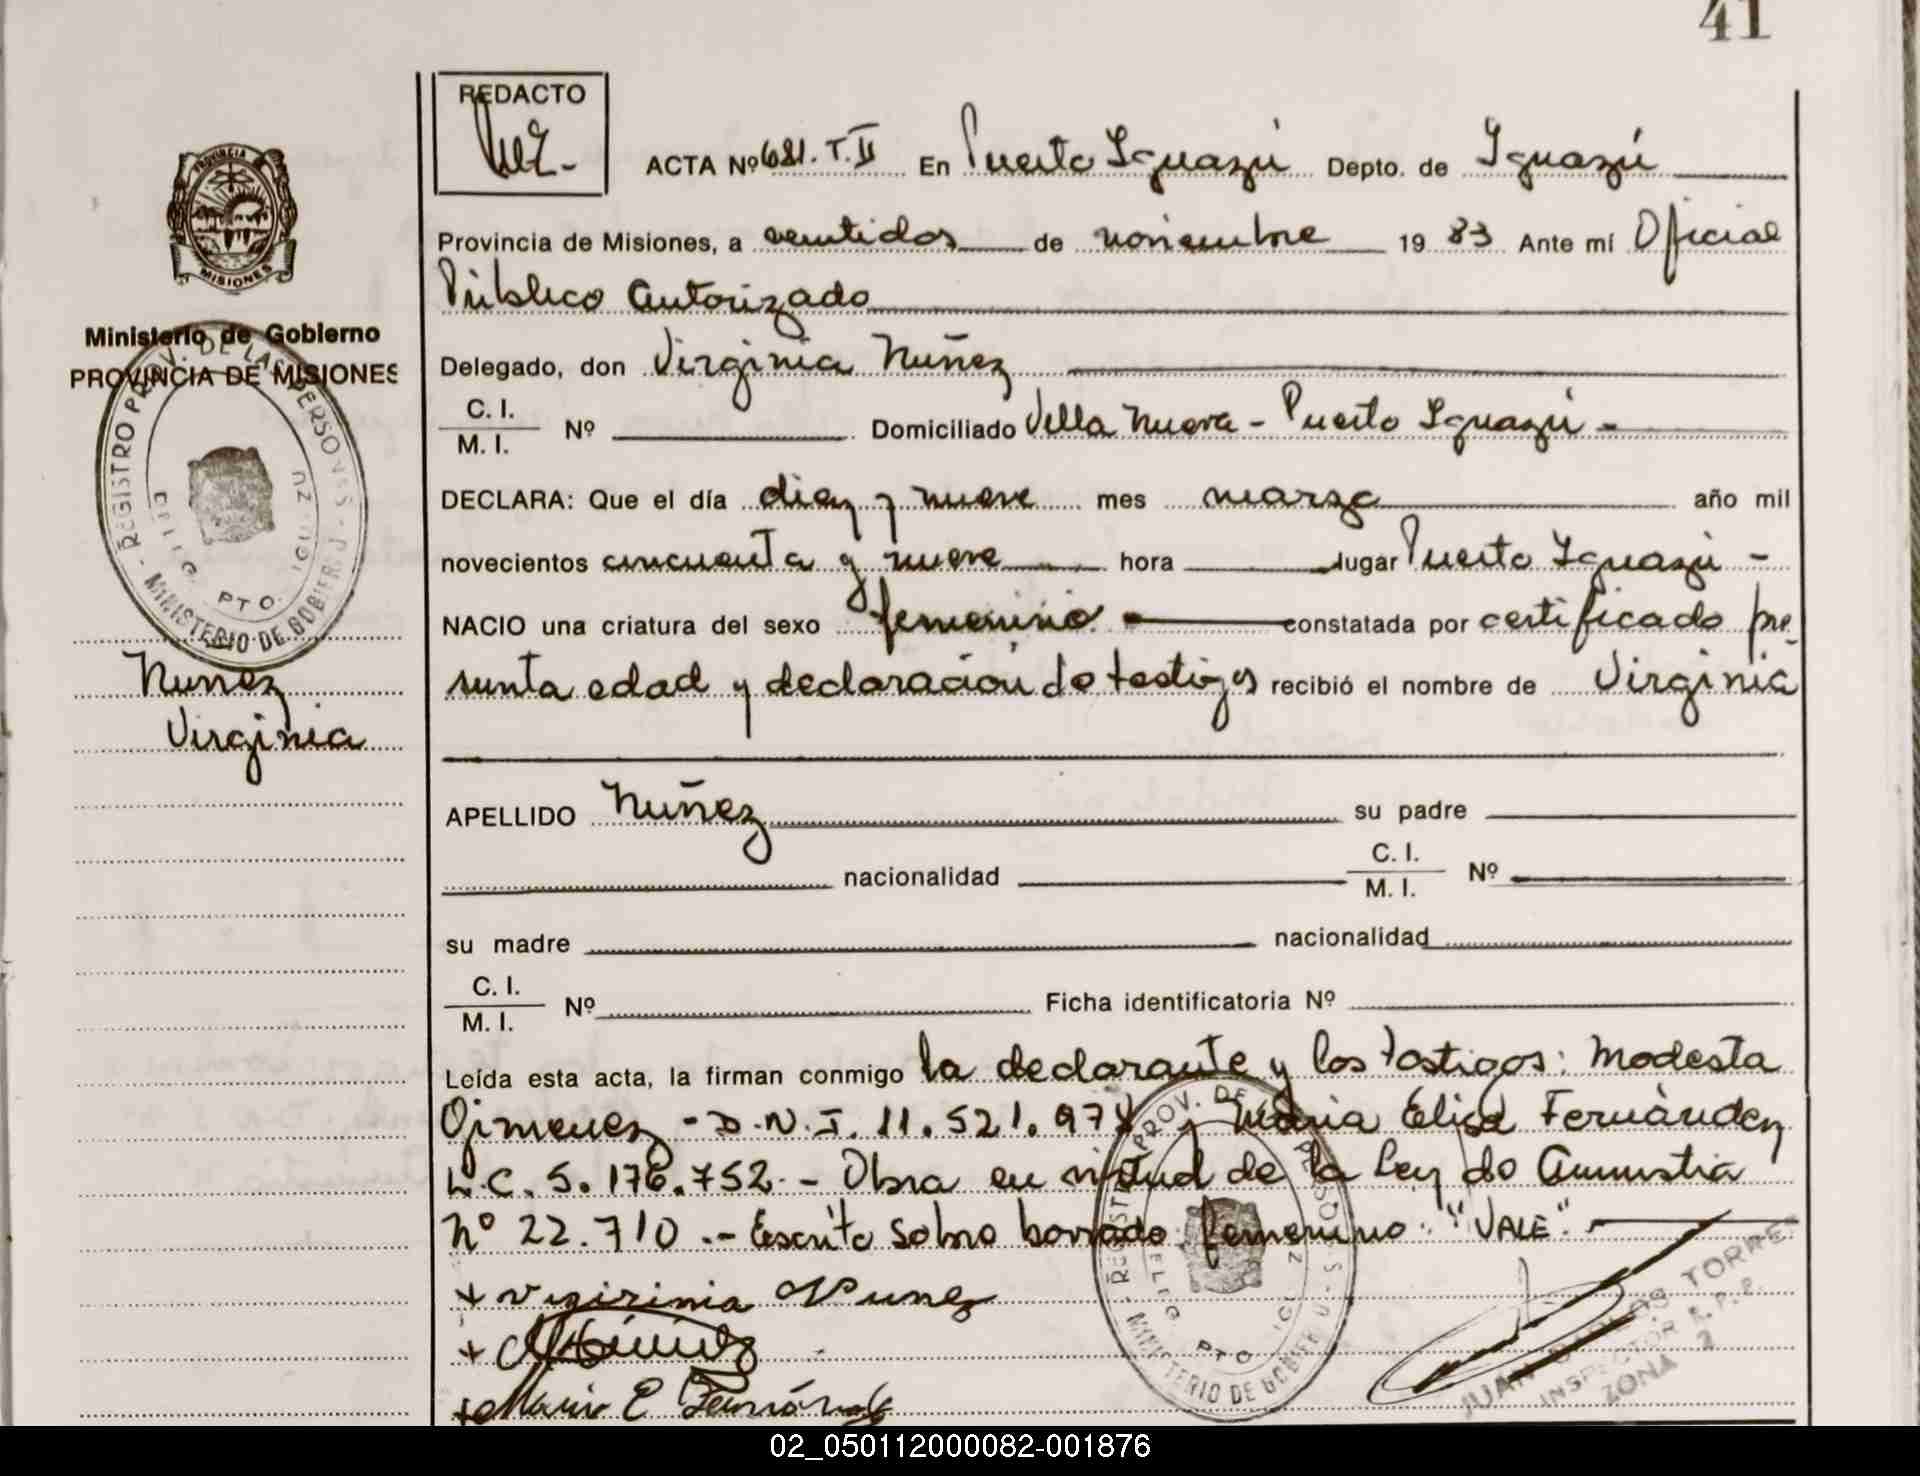 41
REDACTO
ACTA Nº 681. T. II En Puerto Iguazú Depto. de Iguazú
PROVINCIA
MISIONES
Provincia de Misiones, a veintidos de noviembre 19 83 Ante mí Oficial
Público Autorizado
Ministerio de Gobierno
PROVINCIA DE MISIONES
Delegado, don Virginia Nuñez
C. I.
M. I. Nº Domiciliado Villa Nueva - Puerto Iguazú -
REGISTRO PROV. DE LAS PERSONAS - MINISTERIO DE GOBIERNO
DELEG. PTO. IGUAZU
DECLARA: Que el día diez y nueve mes marzo año mil
novecientos cincuenta y nueve hora lugar Puerto Iguazú -
NACIO una criatura del sexo femenino constatada por certificado pre
sunta edad y declaración de testigos recibió el nombre de Virginia
Nuñez
Virginia
APELLIDO Nuñez su padre
nacionalidad C. I.
M. I. Nº
su madre nacionalidad
C. I.
M. I. Nº Ficha identificatoria Nº
Leída esta acta, la firman conmigo la declarante y los testigos: Modesta
Gimenez - D.N.I. 11.521.978 y Maria Elisa Fernández
L.C. 5.176.752 - Obra en virtud de la Ley de Amnistia
Nº 22.710 .- Escrito sobre borrado femenino: "VALE".
+ Vigirinia Nunez
+
+ Maria E Fernández
REGISTRO PROV. DE LAS PERSONAS - MINISTERIO DE GOBIERNO
DELEG. PTO. IGUAZU
JUAN CARLOS TORRE
INSPECTOR R. P. P.
ZONA 2
02_050112000082-001876